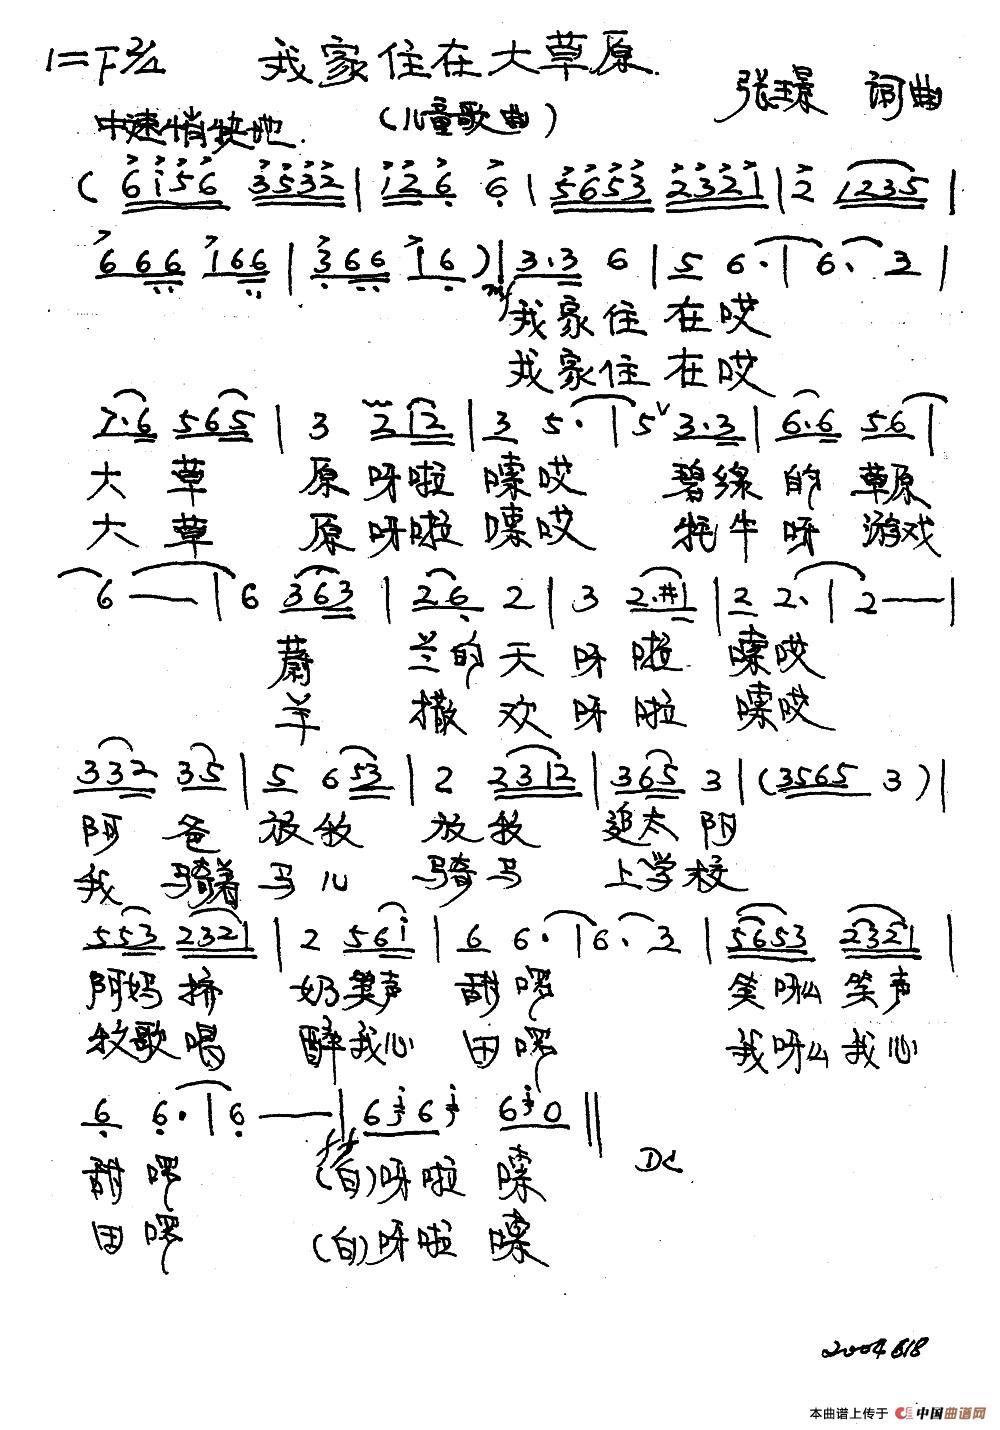 1=F 2/4 我家住在大草原
张璟 词曲
中速悄快地. (儿童歌曲)
( 6i56 3532 | i26 6 | 5653 2321 | 2 1235 |
666 166 | 366 16 ) | 3·3 6 | 5 6· | 6· 3 |
mf
我家住在哎
我家住在哎
1·6 565 | 3 212 | 3 5· | 5 V 3·3 | 6·6 56 |
大草原呀啦嗦哎 碧绿的草原
大草原呀啦嗦哎 牦牛呀游戏
6 — | 6 363 | 26 2 | 3 2·#1 | 2 2· | 2 — |
蔚兰的天呀啦嗦哎
羊撒欢呀啦嗦哎
332 35 | 5 653 | 2 2312 | 365 3 | (3565 3 ) |
阿爸放牧放牧追太阳
我骑着马儿骑马上学校
553 2321 | 2 56i | 6 6· | 6· 3 | 5653 2321 |
阿妈挤奶笑声甜啰 笑呀么笑声
牧歌唱醉我心田啰 我呀么我心
6 6· | 6 — | 6 6 6 0 ‖
ff D.C
甜啰 (白)呀啦嗦
田啰 (白)呀啦嗦
2004 618
本曲谱上传于 中国曲谱网